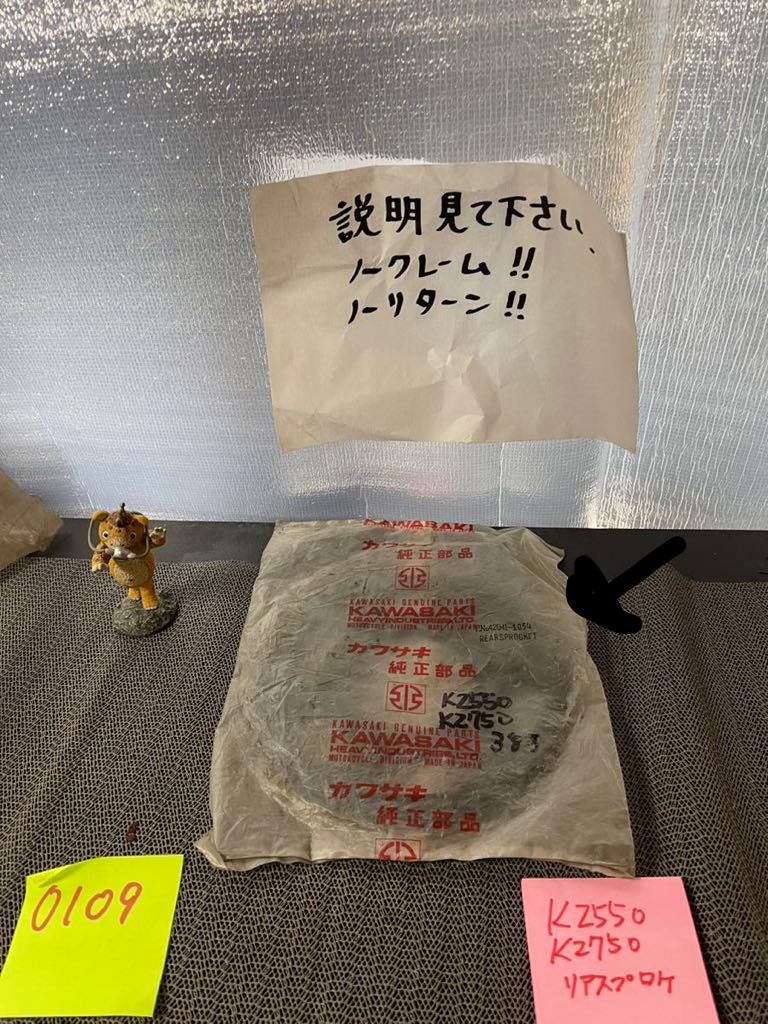 説明見て下さい、
ノークレーム!!
ノーリターン!!
KAWASAKI
カワサキ
純正部品
KAWASAKI GENUINE PARTS
KAWASAKI
HEAVY INDUSTRIES, LTD.
MOTORCYCLE DIVISION MADE IN JAPAN
REARSPROCKET
カワサキ
純正部品
KZ550
KZ750
KAWASAKI GENUINE PARTS
KAWASAKI
HEAVY INDUSTRIES, LTD.
MOTORCYCLE DIVISION MADE IN JAPAN
カワサキ
純正部品
0109
KZ550
KZ750
リアスプロケ